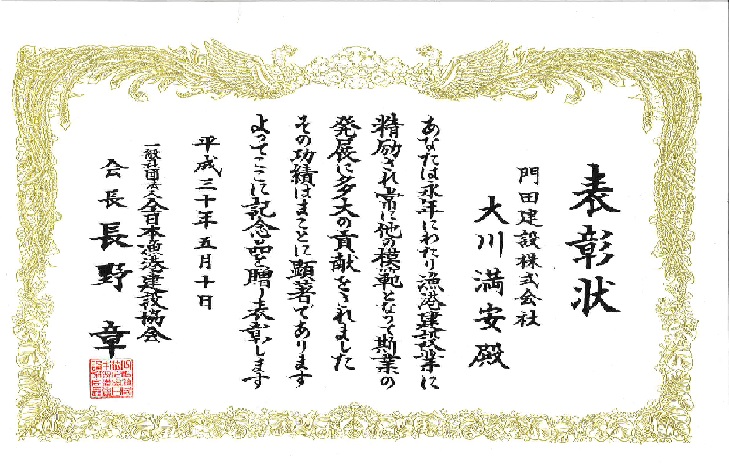 表彰状
門田建設株式会社
大川満安殿
あなたは永年にわたり漁港建設業に
精励され常に他の模範となって斯業の
発展に多大の貢献をされました
その功績はまことに顕著であります
よってここに記念品を贈り表彰します
平成三十年五月十日
一般社団法人全日本漁港建設協会
会長 長野章